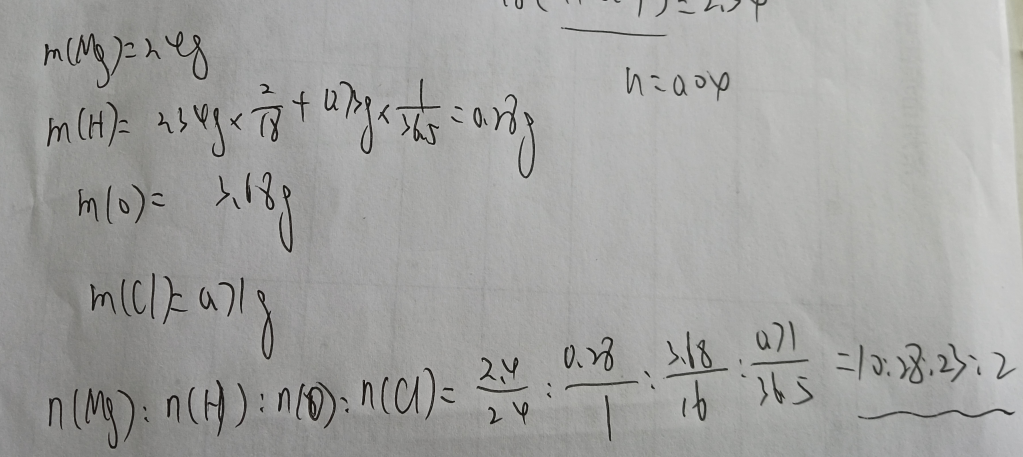 =2.34
m(Mg)=2.4g
n=0.04
m(H)= 2.34g×2/18+0.73g×1/36.5=0.28g
m(O)= 3.68g
m(Cl)=0.71g
n(Mg):n(H):n(O):n(Cl)=2.4/24:0.28/1:3.68/16:0.71/36.5=10:28:23:2